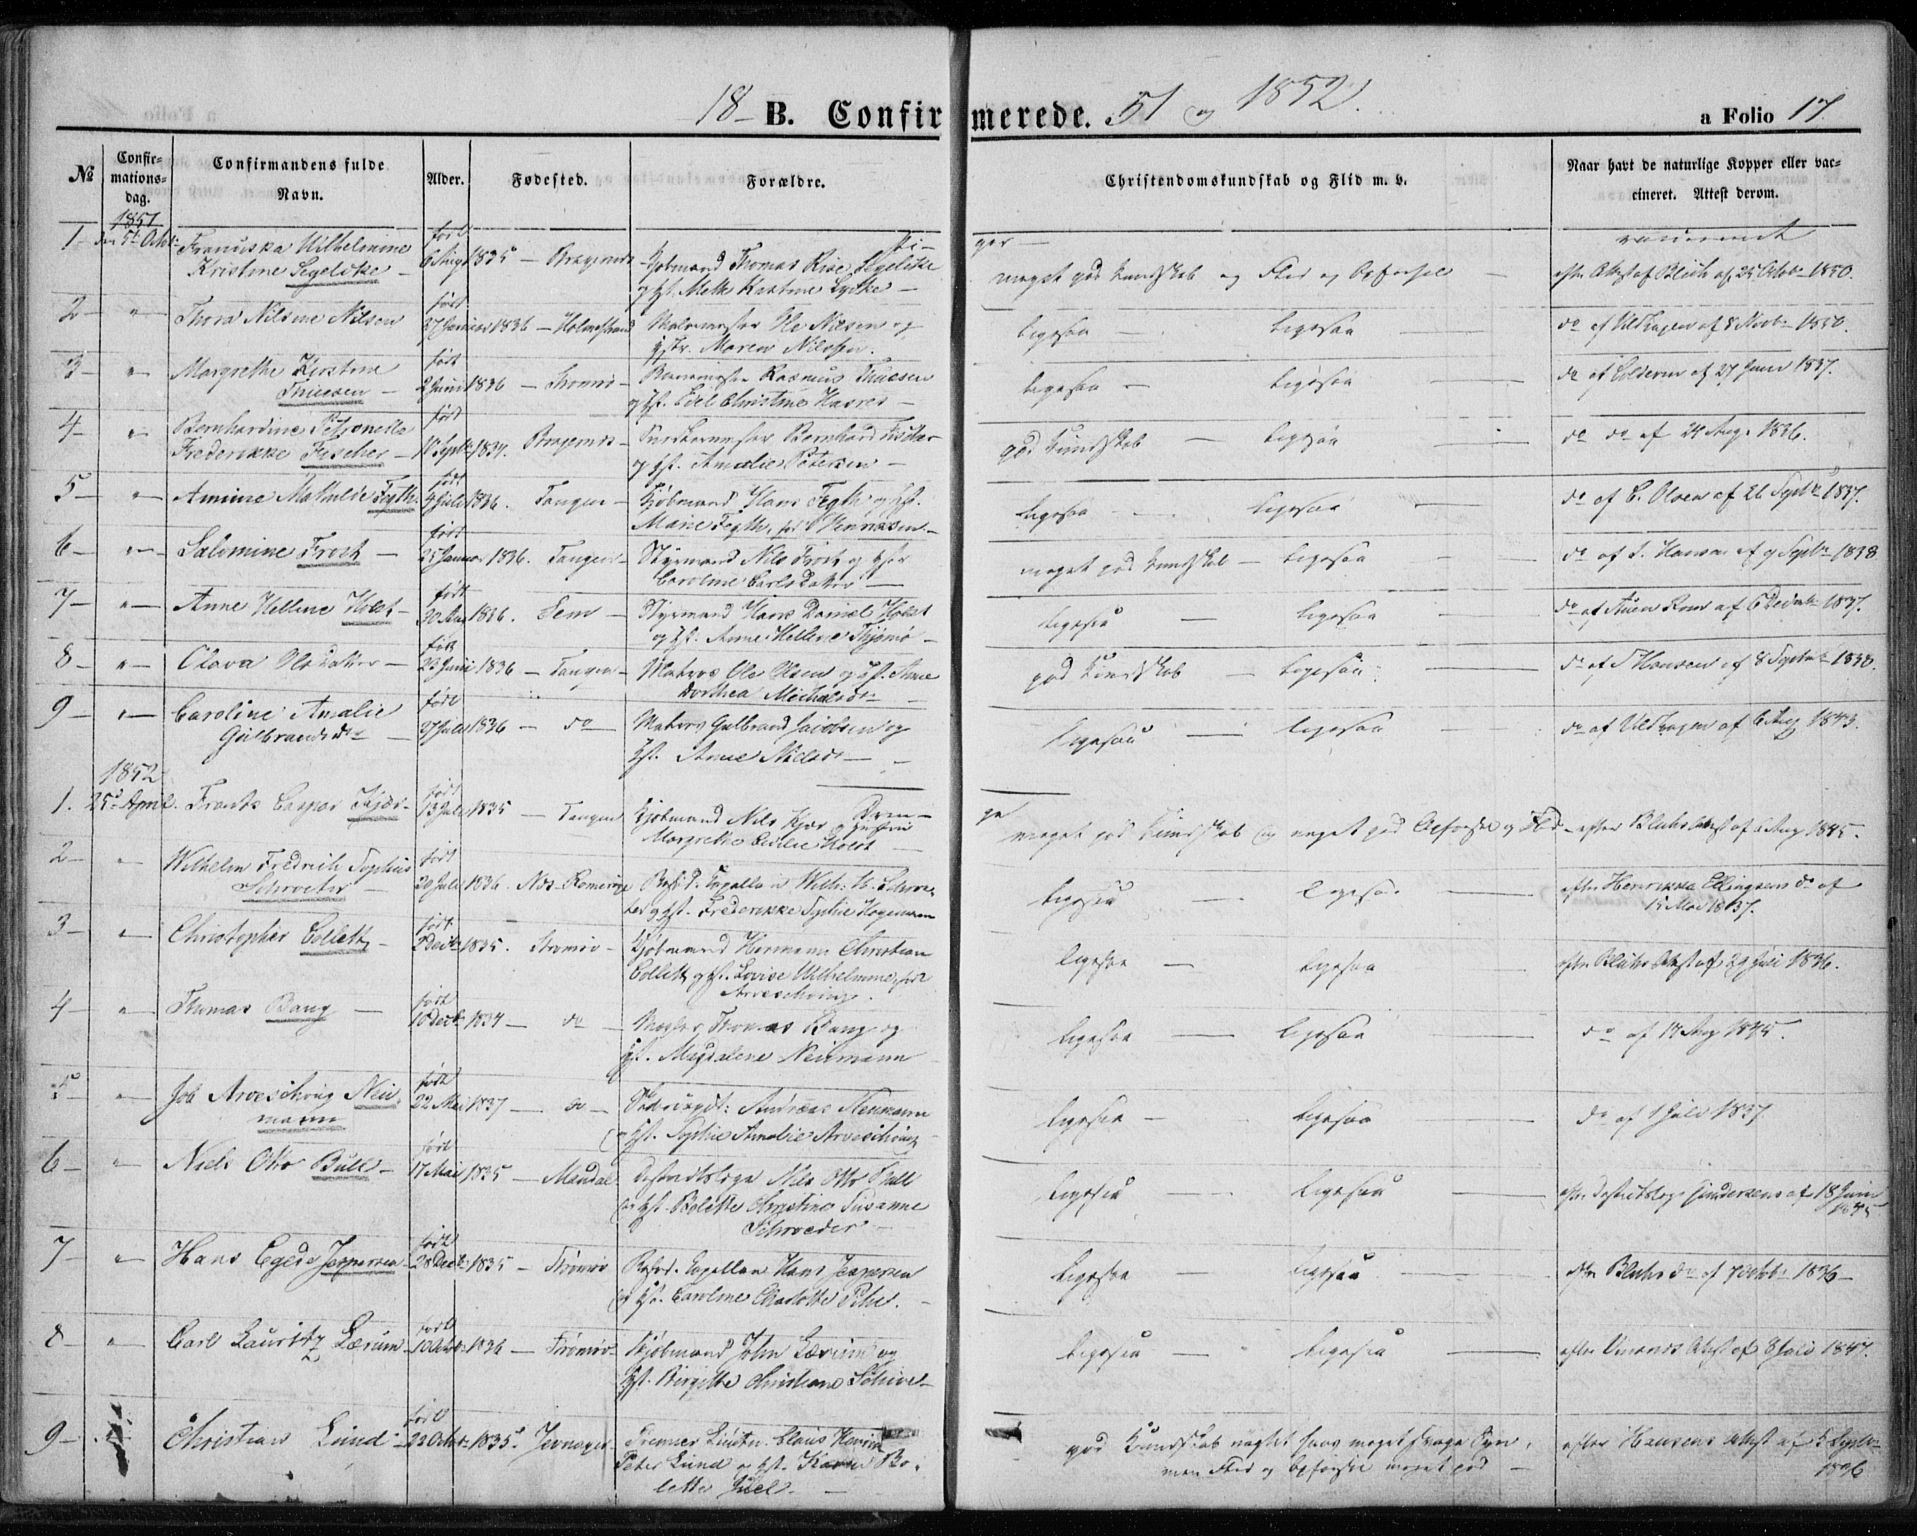 18 B. Confirmerede. 51 og 1852.
a Folio 17.
№ Confirmations-dag. Confirmandens fulde Navn. Alder. Fødested. Forældre. Christendomskundskab og Flid m. v. Naar havt de naturlige Kopper eller vaccineret. Attest derom.
1851
Pi- ger vaccineret
1 den 5t Octbr: Franciska Wilhelmine født Kjøbmand Thomas Rise Segelcke
Kristine Segelcke 6 Aug 1835 Bragernes og Hst. Kristine Lycke meget god Kundskab og Flid og Opførsel efter Attest af Bluhr af 25 Octob 1850.
2 " Thora Nilsine Nilsen født 27 Januar 1836 Holmestrand Ole Nilsen og
Hstr. Maren Nilssen. Ligesaa Ligesaa do af 8 Novb 1850.
3 " Margrethe Kirstine født Rasmus Thuesen
Thuesen 2 Juni 1836 Strømsø og Hst. Edel Christine Ligesaa Ligesaa do af 27 Juni 1837.
4 " Bernhardine Petronelle født Bernhard Fischer
Frederikke Fischer 10 Septbr 1834. Bragernes og Hst. Amalie Petersen god Kundskab Ligesaa do do af 24 Aug 1836.
5 " Amine Mathilde Fegth født 4 Juli 1836. Tangen Kjøbmand Hans Fegth og Hst.
Marie Fegth, født Henriksen. Ligesaa Ligesaa do af C. Olsen af 26 Septbr 1837.
6 " Salomine Frost født 25 Januar 1836. Tangen Styrmand Nils Frost og Hst
Caroline Carlsdatter meget god Kundskab Ligesaa do af J. Hansen af 9 Septbr 1838
7 " Anne Helline Holst født 30 Mai 1836. Fem Styrmand Hans Daniel Holst
og Hst. Anne Helline Tjømø Ligesaa Ligesaa do af 6 Decmbr 1837.
8 " Olava Olsdatter født 22 Juni 1836 Tangen Matros Ole Olsen og Hst. Anne
Dorthea Michelsdr god Kundskab Ligesaa do af J Hansen af 8 Septbr 1838.
9 " Caroline Amalie født Matros Gulbrand Jacobsen og
Gulbrandsdr 27 Juli 1836 do Hst. Anne Nielsdr Ligesaa Ligesaa do af 6 Aug 1843.
1852
Dren- ge
1. 25d April. Frantz Caspar Kjær født 13 Juli 1835 Tangen Kjøbmand Nils Kjær og Hustru
Margrethe Cecilie Holst meget god Kundskab og meget god Opførsel og Flid efter Bluhrs Attest af 6 Aug 1845.
2 " Wilhelm Fredrik Sophus født
Schroeter 20 Juli 1836. Næs Romerige Resid. Capellan Wilh: Schroe-
ter og Hst. Frederikke Sophie Hagemann Ligesaa Ligesaa efter Henrikka Ellingsens do af
15 Mai 1837.
3 " Christopher Collett født 2 Decbr 1835. Strømsø Kjøbmand Hermann Christian
Collett og Hst. Lovise Wilhelmine, født
Arveschoug. Ligesaa Ligesaa efter Bluhrs Attest af 29 Juli 1836.
4 " Thomas Bang født 10 Decbr 1834 do Mægler Thomas Bang og
Hst. Magdalene Neumann Ligesaa Ligesaa do af 14 Aug 1845.
5 " Job Arveschoug Neu- født
mann 22 Mai 1837 do Andreas Neumann
og Hst. Sophie Amalie Arveschoug Ligesaa Ligesaa do af 1 Juli 1837
6 " Niels Otto Bull født 17 Mai 1835 Mandal Distriktslæge Nils Otto Bull
og Hst. Bolette Christine Susanne
Schroeder Ligesaa Ligesaa efter Distriktslæge af 18 Juni
1845
7 " Hans Egede Jespersen født 28 Decbr 1835 Strømsø Resid. Capellan Hans Jespersen
og Hst. Caroline Charlotte Pihl. Ligesaa Ligesaa efter Bluhrs do af Octobr 1836
8 " Carl Lauritz Lærum født 10 Octbr 1836 Strømsø Kjøbmand John Lærum og
Hst. Birgitte Christiane Schive Ligesaa Ligesaa efter Attest af 8 Juli 1847.
9 Christian Lund født 22 Octbr 1835 Jevnager Premier Lieutn. Claus Henrik
Peter Lund og Hst. Karen Bo-
lette Juel god Kundskab uagtet hans meget svage Syn,
men Flid og Opførsel meget god efter Hansens Attest af 5 Septbr
1836